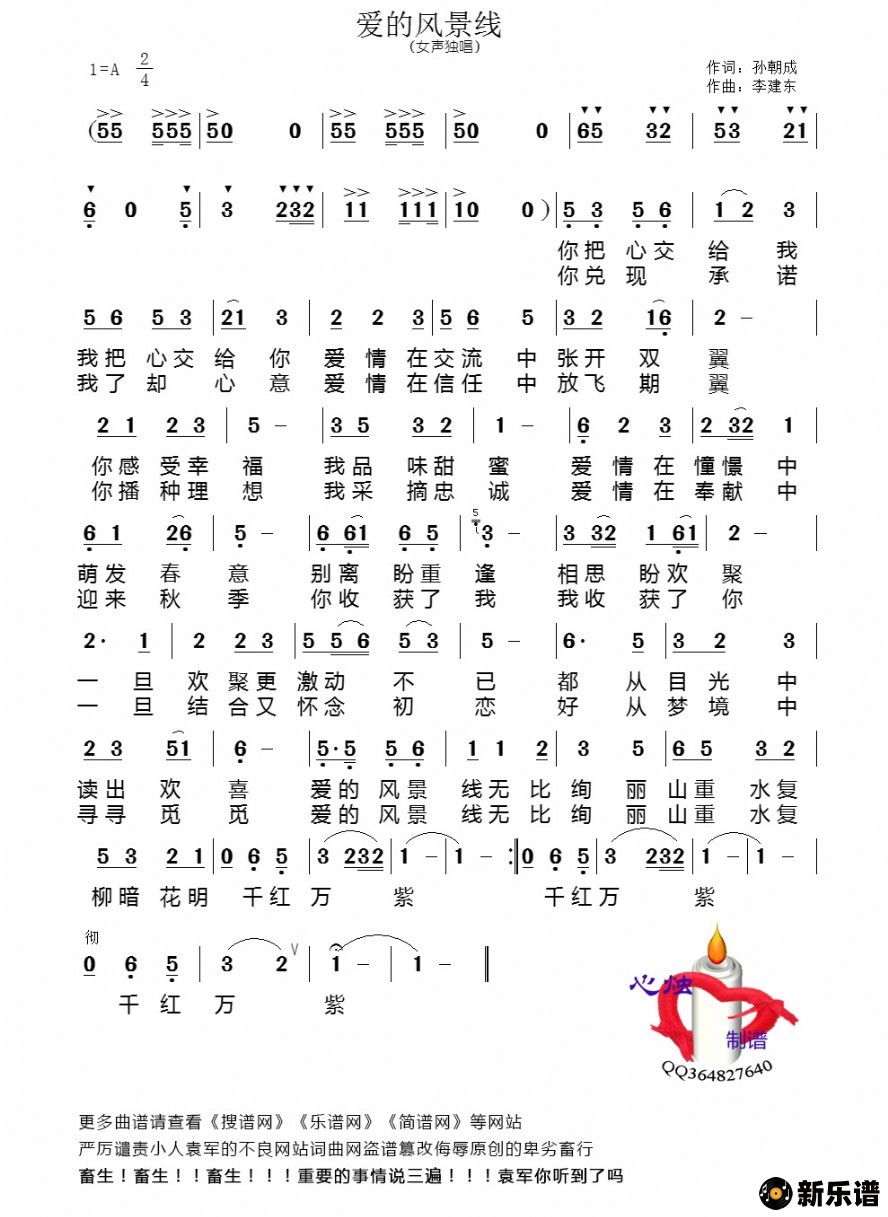 爱的风景线
(女声独唱)
1=A 2/4
作词：孙朝成
作曲：李建东
(55 555 | 50 0 | 55 555 | 50 0 | 65 32 | 53 21 |
6 0 5 | 3 232 | 11 111 | 10 0 ) | 5 3 5 6 | 1 2 3 |
你把心交给我
你兑现承诺
5 6 5 3 | 21 3 | 2 2 3 | 5 6 5 | 3 2 16 | 2 – |
我把心交给你爱情在交流中张开双翼
我了却心意爱情在信任中放飞期翼
2 1 2 3 | 5 – | 3 5 3 2 | 1 – | 6 2 3 | 2 32 1 |
你感受幸福我品味甜蜜爱情在憧憬中
你播种理想我采摘忠诚爱情在奉献中
6 1 26 | 5 – | 6 61 6 5 | 5 3 – | 3 32 1 61 | 2 – |
萌发春意别离盼重逢相思盼欢聚
迎来秋季你收获了我我收获了你
2· 1 | 2 2 3 | 5 5 6 5 3 | 5 – | 6· 5 | 3 2 3 |
一旦欢聚更激动不已都从目光中
一旦结合又怀念初恋好从梦境中
2 3 51 | 6 – | 5·5 5 6 | 1 1 2 | 3 5 | 6 5 3 2 |
读出欢喜爱的风景线无比绚丽山重水复
寻寻觅觅爱的风景线无比绚丽山重水复
5 3 2 1 | 0 6 5 | 3 232 | 1 – | 1 – :| 0 6 5 | 3 232 | 1 – | 1 – |
柳暗花明千红万紫千红万紫
彻
0 6 5 | 3 2 V | 1 – | 1 – ||
千红万紫
心烛
制谱
QQ364827640
更多曲谱请查看《搜谱网》《乐谱网》《简谱网》等网站
严厉谴责小人袁军的不良网站词曲网盗谱篡改侮辱原创的卑劣畜行
畜生！畜生！！畜生！！！重要的事情说三遍！！！袁军你听到了吗
新乐谱